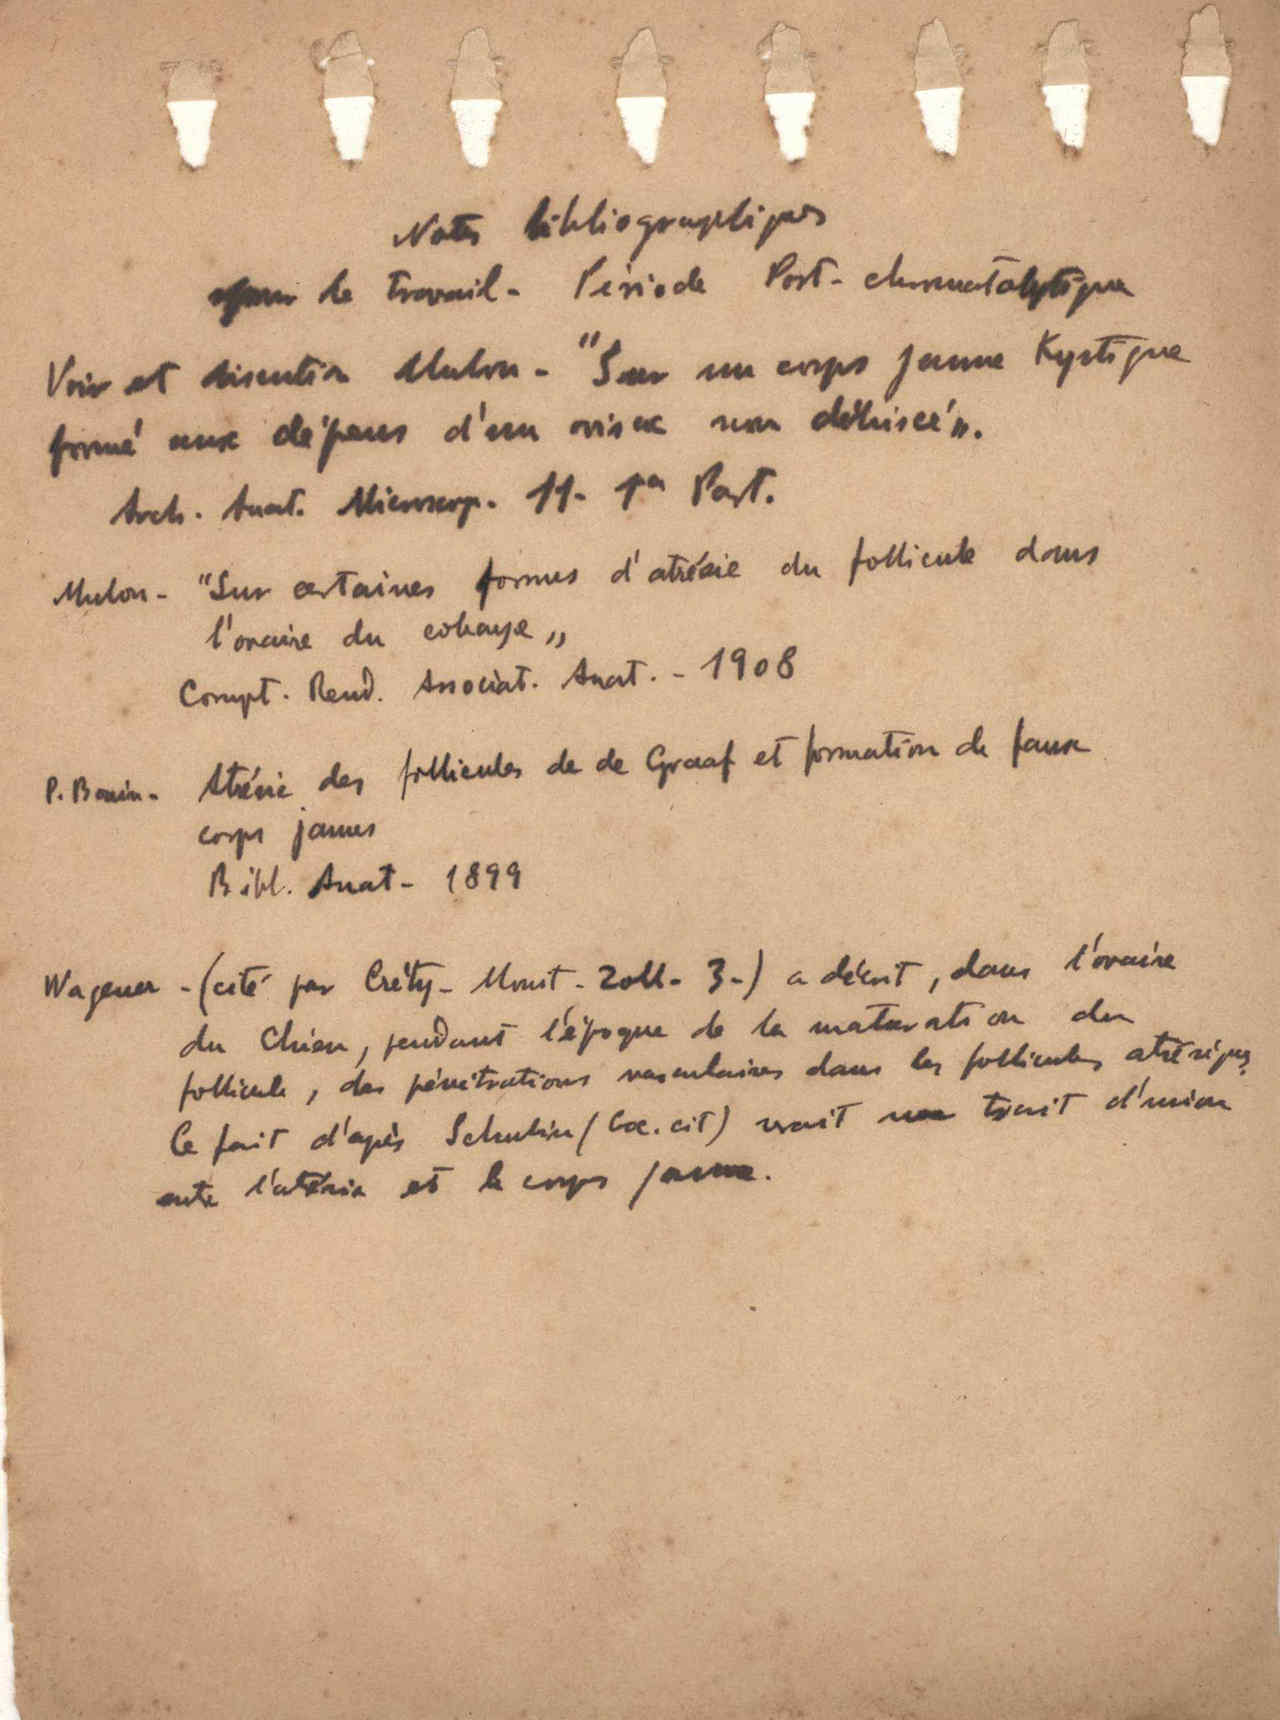 Notes bibliographiques
pour le travail - Période Post-chromatolytique
Voir et discution Mulon - "Sur un corps jaune Kystique
formé aux dépens d'un ovisac non déhiscé".
Arch. Anat. Microscop. 11 - 1ª Part.
Mulon - "Sur certaines formes d'atrésie du follicule dans
l'ovaire du cobaye"
Compt. Rend. Associat. Anat. - 1908
P. Bouin - Atrésie des follicules de de Graaf et formation de faux
corps jaunes
Bibl. Anat - 1899
Wagener - (cité par Créty - Monit - Zoll - 3 -) a décrit, dans l'ovaire
du Chien, pendant l'époque de la maturation du
follicule, des pénétrations vasculaires dans les follicules atrésiques
Ce fait d'après Schulin (loc. cit) serait un trait d'union
entre l'atrésie et le corps jaune.